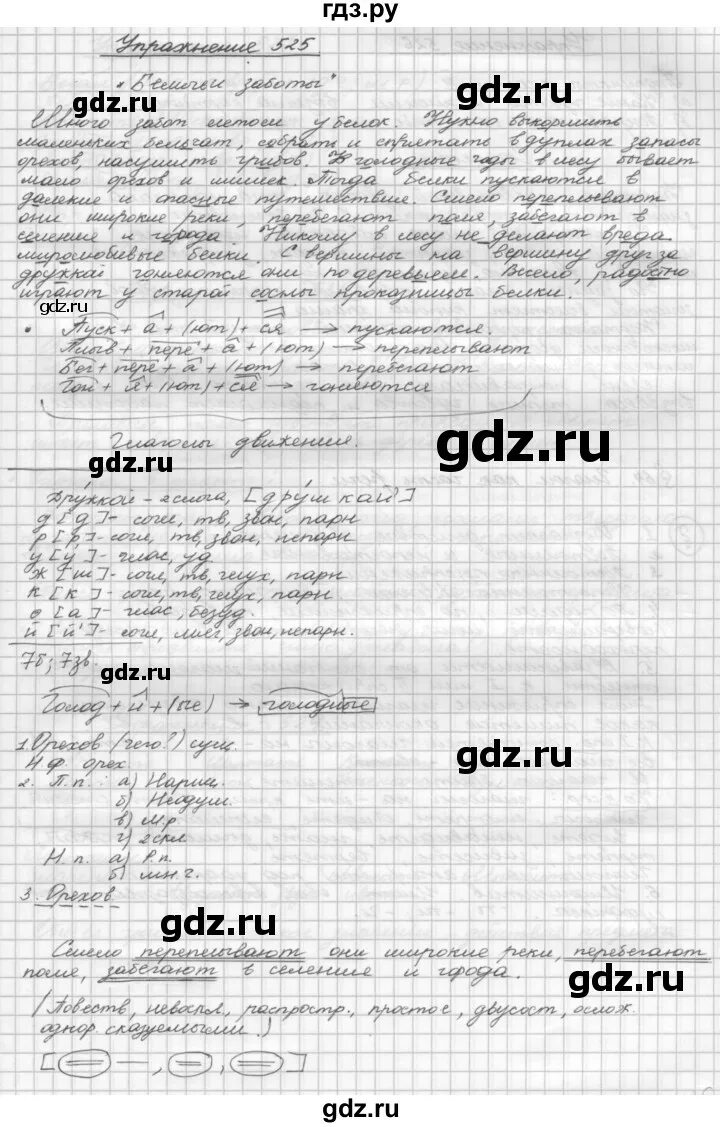 гдз.ру
Упражнение 525
"Беличьи заботы"
Много забот летом у белок. Нужно выкормить
маленьких бельчат, собрать и спрятать в дуплах запасы
орехов, насушить грибов. В голодные годы в лесу бывает
мало орехов и шишек. Тогда белки пускаются в
далёкие и опасные путешествия. Смело переплывают
они широкие реки, перебегают поля, забегают в
селения и города. Никому в лесу не делают вреда
миролюбивые белки. С вершины на вершину друг за
дружкой гоняются они по деревьям. Весело, радостно
играют у старой сосны проказницы белки.
• Пуск + а + (ют) + ся → пускаются.
Плыв + пере + а + (ют) → переплывают
Бег + пере + а + (ют) → перебегают
Гон + я + (ют) + ся → гоняются
Глаголы движения.
Дру́жкой - 2 слога, [др'ушкай']
д [д] - согл, тв, звон, парн
р [р] - согл, тв, звон, непарн.
у [у́] - глас, уд.
ж [ш] - согл, тв, глух, парн
к [к] - согл, тв, глух, парн.
о [а] - глас, безуд.
й [й'] - согл, мягк, звон, непарн.
7б; 7зв.
Голод + н + (ые) → голодные
1. Орехов (чего?) сущ.
Н.ф. орех.
2. П.п.: а) Нариц.
б) Неодуш.
в) М.р.
г) 2 скл
Н.п. а) Р.п.
б) мн.ч.
3. Орехов.
Смело переплывают они широкие реки, перебегают
поля, забегают в селения и города.
(Повеств, невоскл, распростр., простое, двусост, ослож.
однор. сказуемыми.)
[(=) —, (=), (=)]
gdz.ru
gdz.ru
gdz.ru
gdz.ru
gdz.ru
gdz.ru
gdz.ru
gdz.ru
gdz.ru
gdz.ru
gdz.ru
gdz.ru
gdz.ru